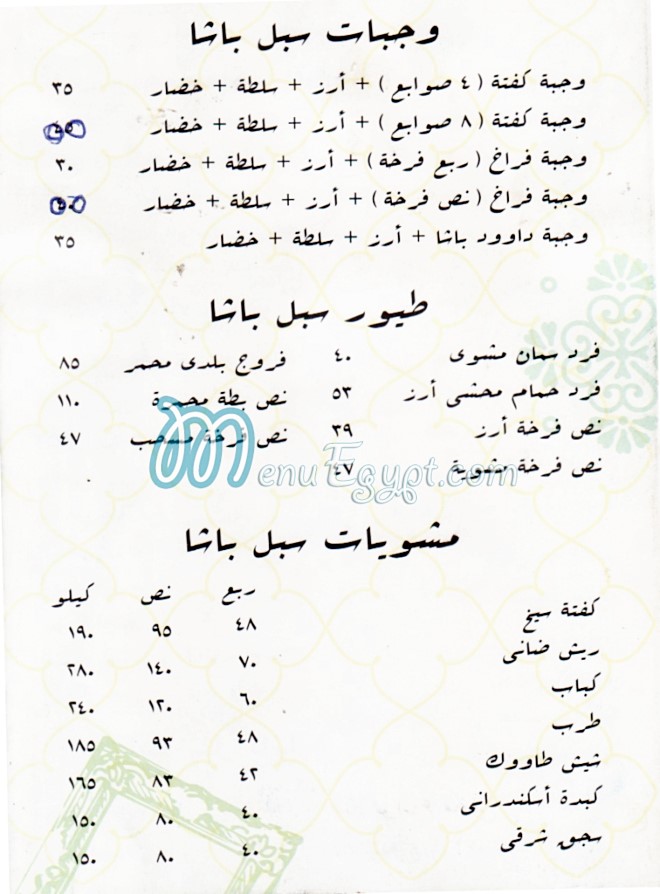 وجبات سبل باشا
وجبة كفتة ( ٤ صوابع ) + أرز + سلطة + خضار ٣٥
وجبة كفتة ( ٨ صوابع ) + أرز + سلطة + خضار
وجبة فراخ ( ربع فرخة ) + أرز + سلطة + خضار ٣٠
وجبة فراخ ( نص فرخة ) + أرز + سلطة + خضار
وجبة داوود باشا + أرز + سلطة + خضار ٣٥
طيور سبل باشا
فرد سمان مشوى ٤٠ فروج بلدى محمر ٨٥
فرد حمام محشى أرز ٥٣ نص بطة محمرة ١١٠
نص فرخة أرز ٣٩ نص فرخة مسحب ٤٧
نص فرخة مشوية ٤٧
MenuEgypt.com
مشويات سبل باشا
ربع نص كيلو
كفتة سيخ ٤٨ ٩٥ ١٩٠
ريش ضانى ٧٠ ١٤٠ ٢٨٠
كباب ٦٠ ١٢٠ ٢٤٠
طرب ٤٨ ٩٣ ١٨٥
شيش طاووك ٤٢ ٨٣ ١٦٥
كبدة أسكندرانى ٤٠ ٨٠ ١٥٠
سجق شرقى ٤٠ ٨٠ ١٥٠